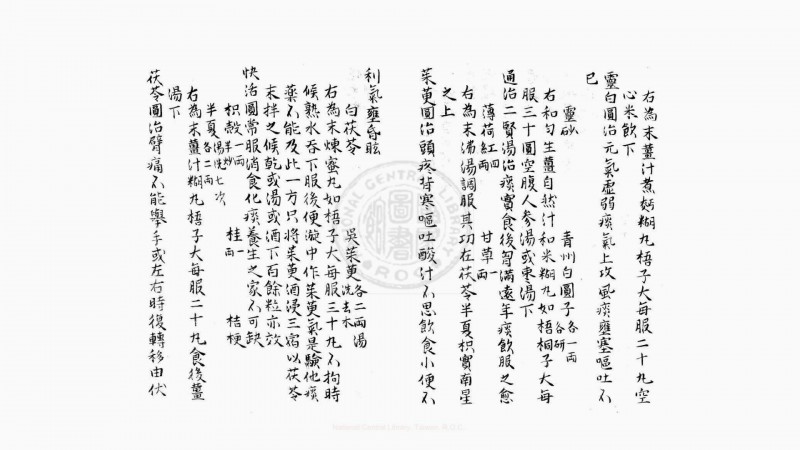 右為末薑汁煮麪糊丸梧子大每服二十丸空
心米飲下
靈白圓治元氣虛弱痰氣上攻風痰壅塞嘔吐不
已
靈砂 青州白圓子各一兩各研
右和勻生薑自然汁和米糊丸如梧桐子大每
服三十圓空腹人參湯或棗湯下
通治二賢湯治痰實食後胷滿遠年痰飲服之愈
薄荷紅四兩 甘草一兩
右為末沸湯調服其功在茯苓半夏枳實南星
之上
茱萸圓治頭疼背寒嘔吐酸汁不思飲食小便不
利氣壅昏眩
白茯苓 吳茱萸各二兩湯洗去水
右為末煉蜜丸如梧子大每服三十丸不拘時
候熟水吞下服後便漩中作茱萸氣是驗他痰
藥不能及此一方只將茱萸酒浸三宿以茯苓
末拌之候乾或湯或酒下百餘粒亦效
快活圓常服消食化痰養生之家不可缺
枳殼一兩半炒 桂一兩 桔梗
半夏各二兩湯洗七次
右為末薑汁糊丸梧子大每服二十丸食後薑
湯下
茯苓圓治臂痛不能舉手或左右時復轉移由伏
NATIONAL CENTRAL LIBRARY
R.O.C.